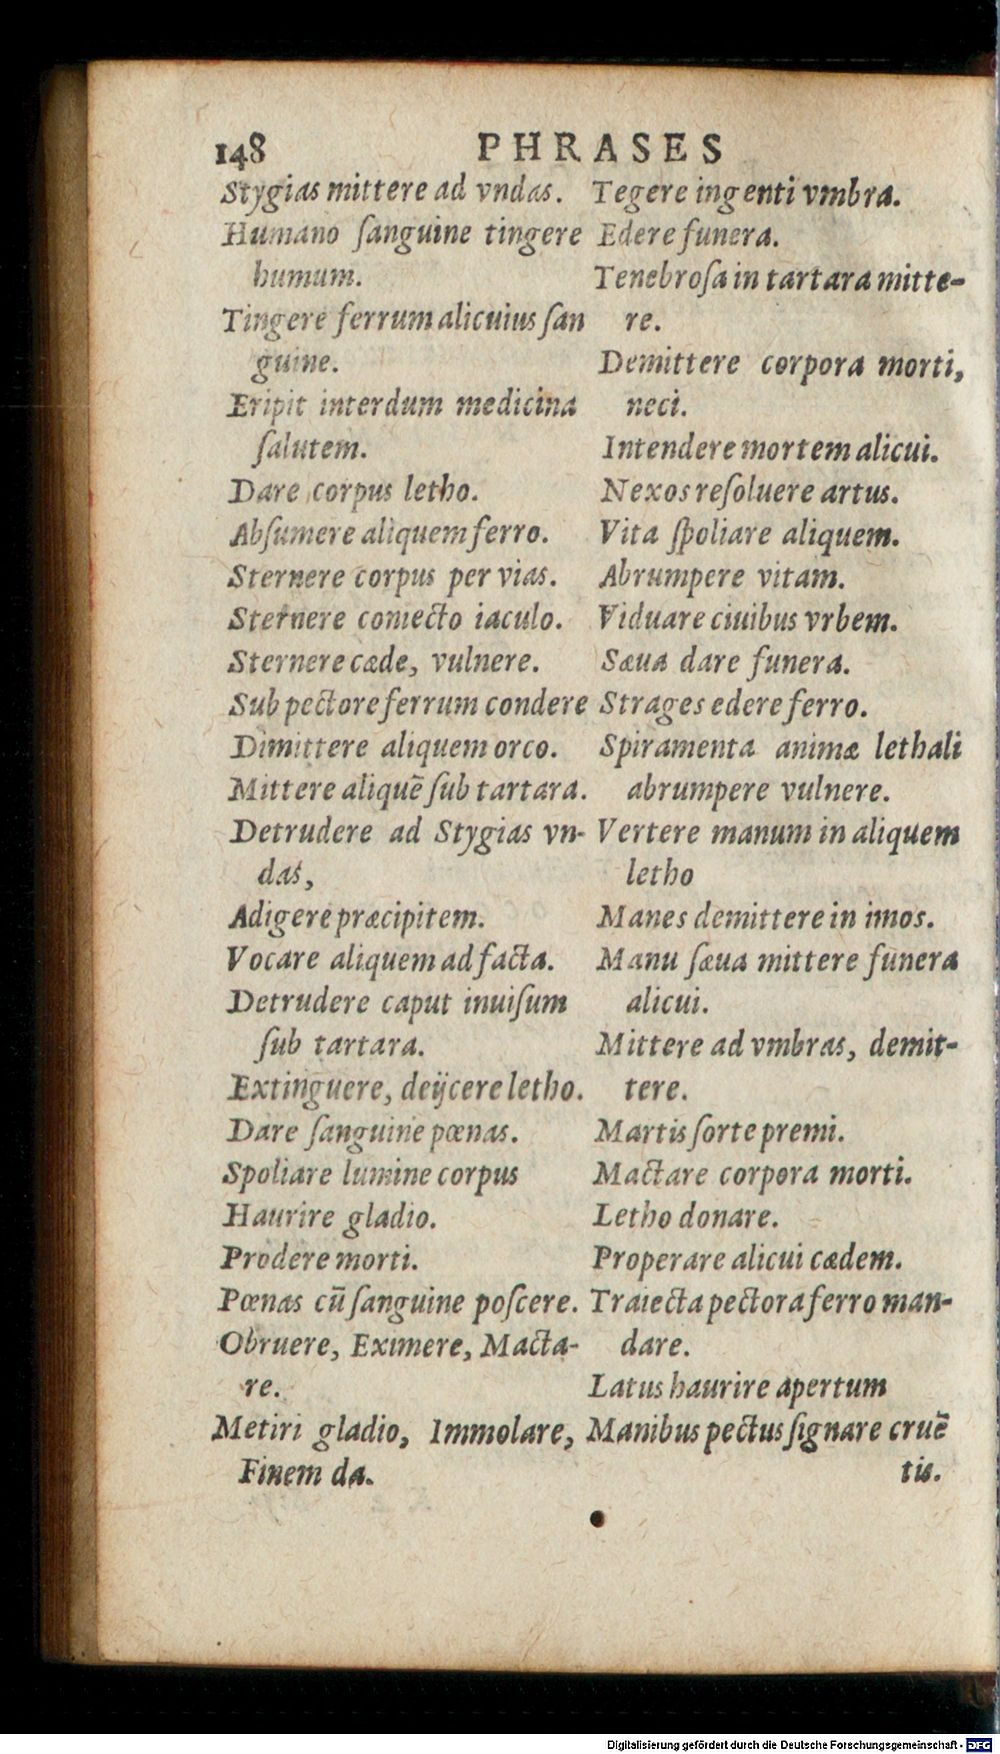 148 PHRASES
Stygias mittere ad vndas.
Humano ſanguine tingere
humum.
Tingere ferrum alicuius ſan
guine.
Eripit interdum medicina
ſalutem.
Dare corpus letho.
Abſumere aliquem ferro.
Sternere corpus per vias.
Sternere coniecto iaculo.
Sternere cæde, vulnere.
Sub pectore ferrum condere
Dimittere aliquem orco.
Mittere aliquē ſub tartara.
Detrudere ad Stygias vn-
das,
Adigere præcipitem.
Vocare aliquem ad facta.
Detrudere caput inuiſum
ſub tartara.
Extinguere, deijcere letho.
Dare ſanguine pœnas.
Spoliare lumine corpus
Haurire gladio.
Prodere morti.
Pœnas cū ſanguine poſcere.
Obruere, Eximere, Macta-
re.
Metiri gladio, Immolare,
Finem da.
Tegere ingenti vmbra.
Edere funera.
Tenebroſa in tartara mitte-
re.
Demittere corpora morti,
neci.
Intendere mortem alicui.
Nexos reſoluere artus.
Vita ſpoliare aliquem.
Abrumpere vitam.
Viduare ciuibus vrbem.
Sæua dare funera.
Strages edere ferro.
Spiramenta animæ lethali
abrumpere vulnere.
Vertere manum in aliquem
letho
Manes demittere in imos.
Manu ſæua mittere funera
alicui.
Mittere ad vmbras, demit-
tere.
Martis ſorte premi.
Mactare corpora morti.
Letho donare.
Properare alicui cædem.
Traiecta pectora ferro man-
dare.
Latus haurire apertum
Manibus pectus ſignare cruē
tis.
Digitalisierung gefördert durch die Deutsche Forschungsgemeinschaft - DFG